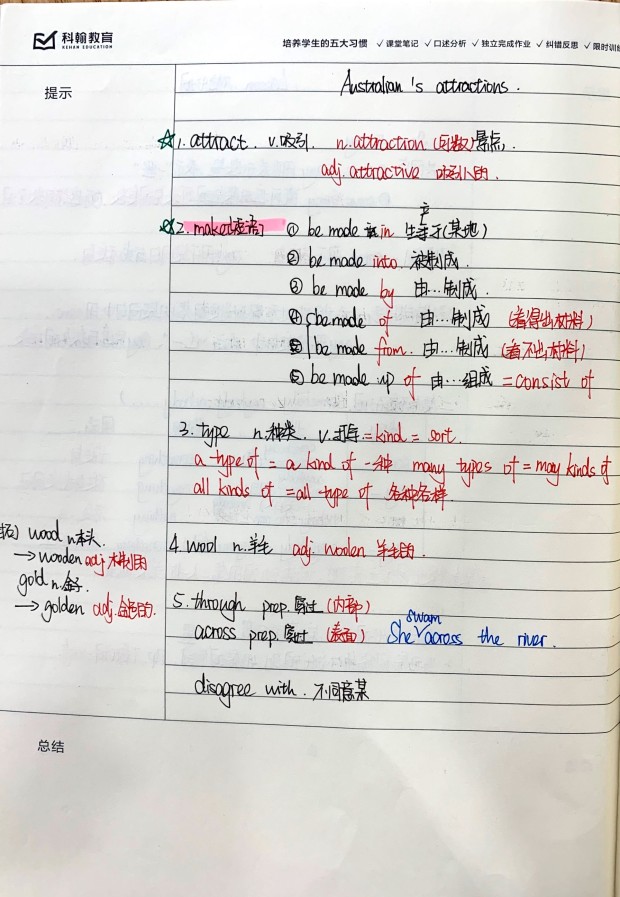 科翰教育
KEHAN EDUCATION
培养学生的五大习惯 ✓课堂笔记 ✓口述分析 ✓独立完成作业 ✓纠错反思 ✓限时训
提示
Australian's attractions.
☆1. attract. v.吸引. n.attraction (可数)景点.
adj. attractive 吸引人的.
☆2. make 短语 ① be made in 生产于(某地)
② be made into 被制成.
③ be made by 由…制成.
④ be made of 由…制成 (看得出材料)
⑤ be made from. 由…制成 (看不出材料)
⑤ be made up of 由…组成 = consist of
3. type n.种类. v.打字 = kind = sort.
a type of = a kind of 一种 many types of = many kinds of
all kinds of = all type of 各种各样.
wood n.木头.
→ wooden adj 木制的
gold n.金子.
→ golden adj.金色的.
4. wool n.羊毛 adj. woolen 羊毛的.
5. through prep. 穿过 (内部)
across prep. 穿过 (表面) She swam across the river.
disagree with. 不同意某
总结